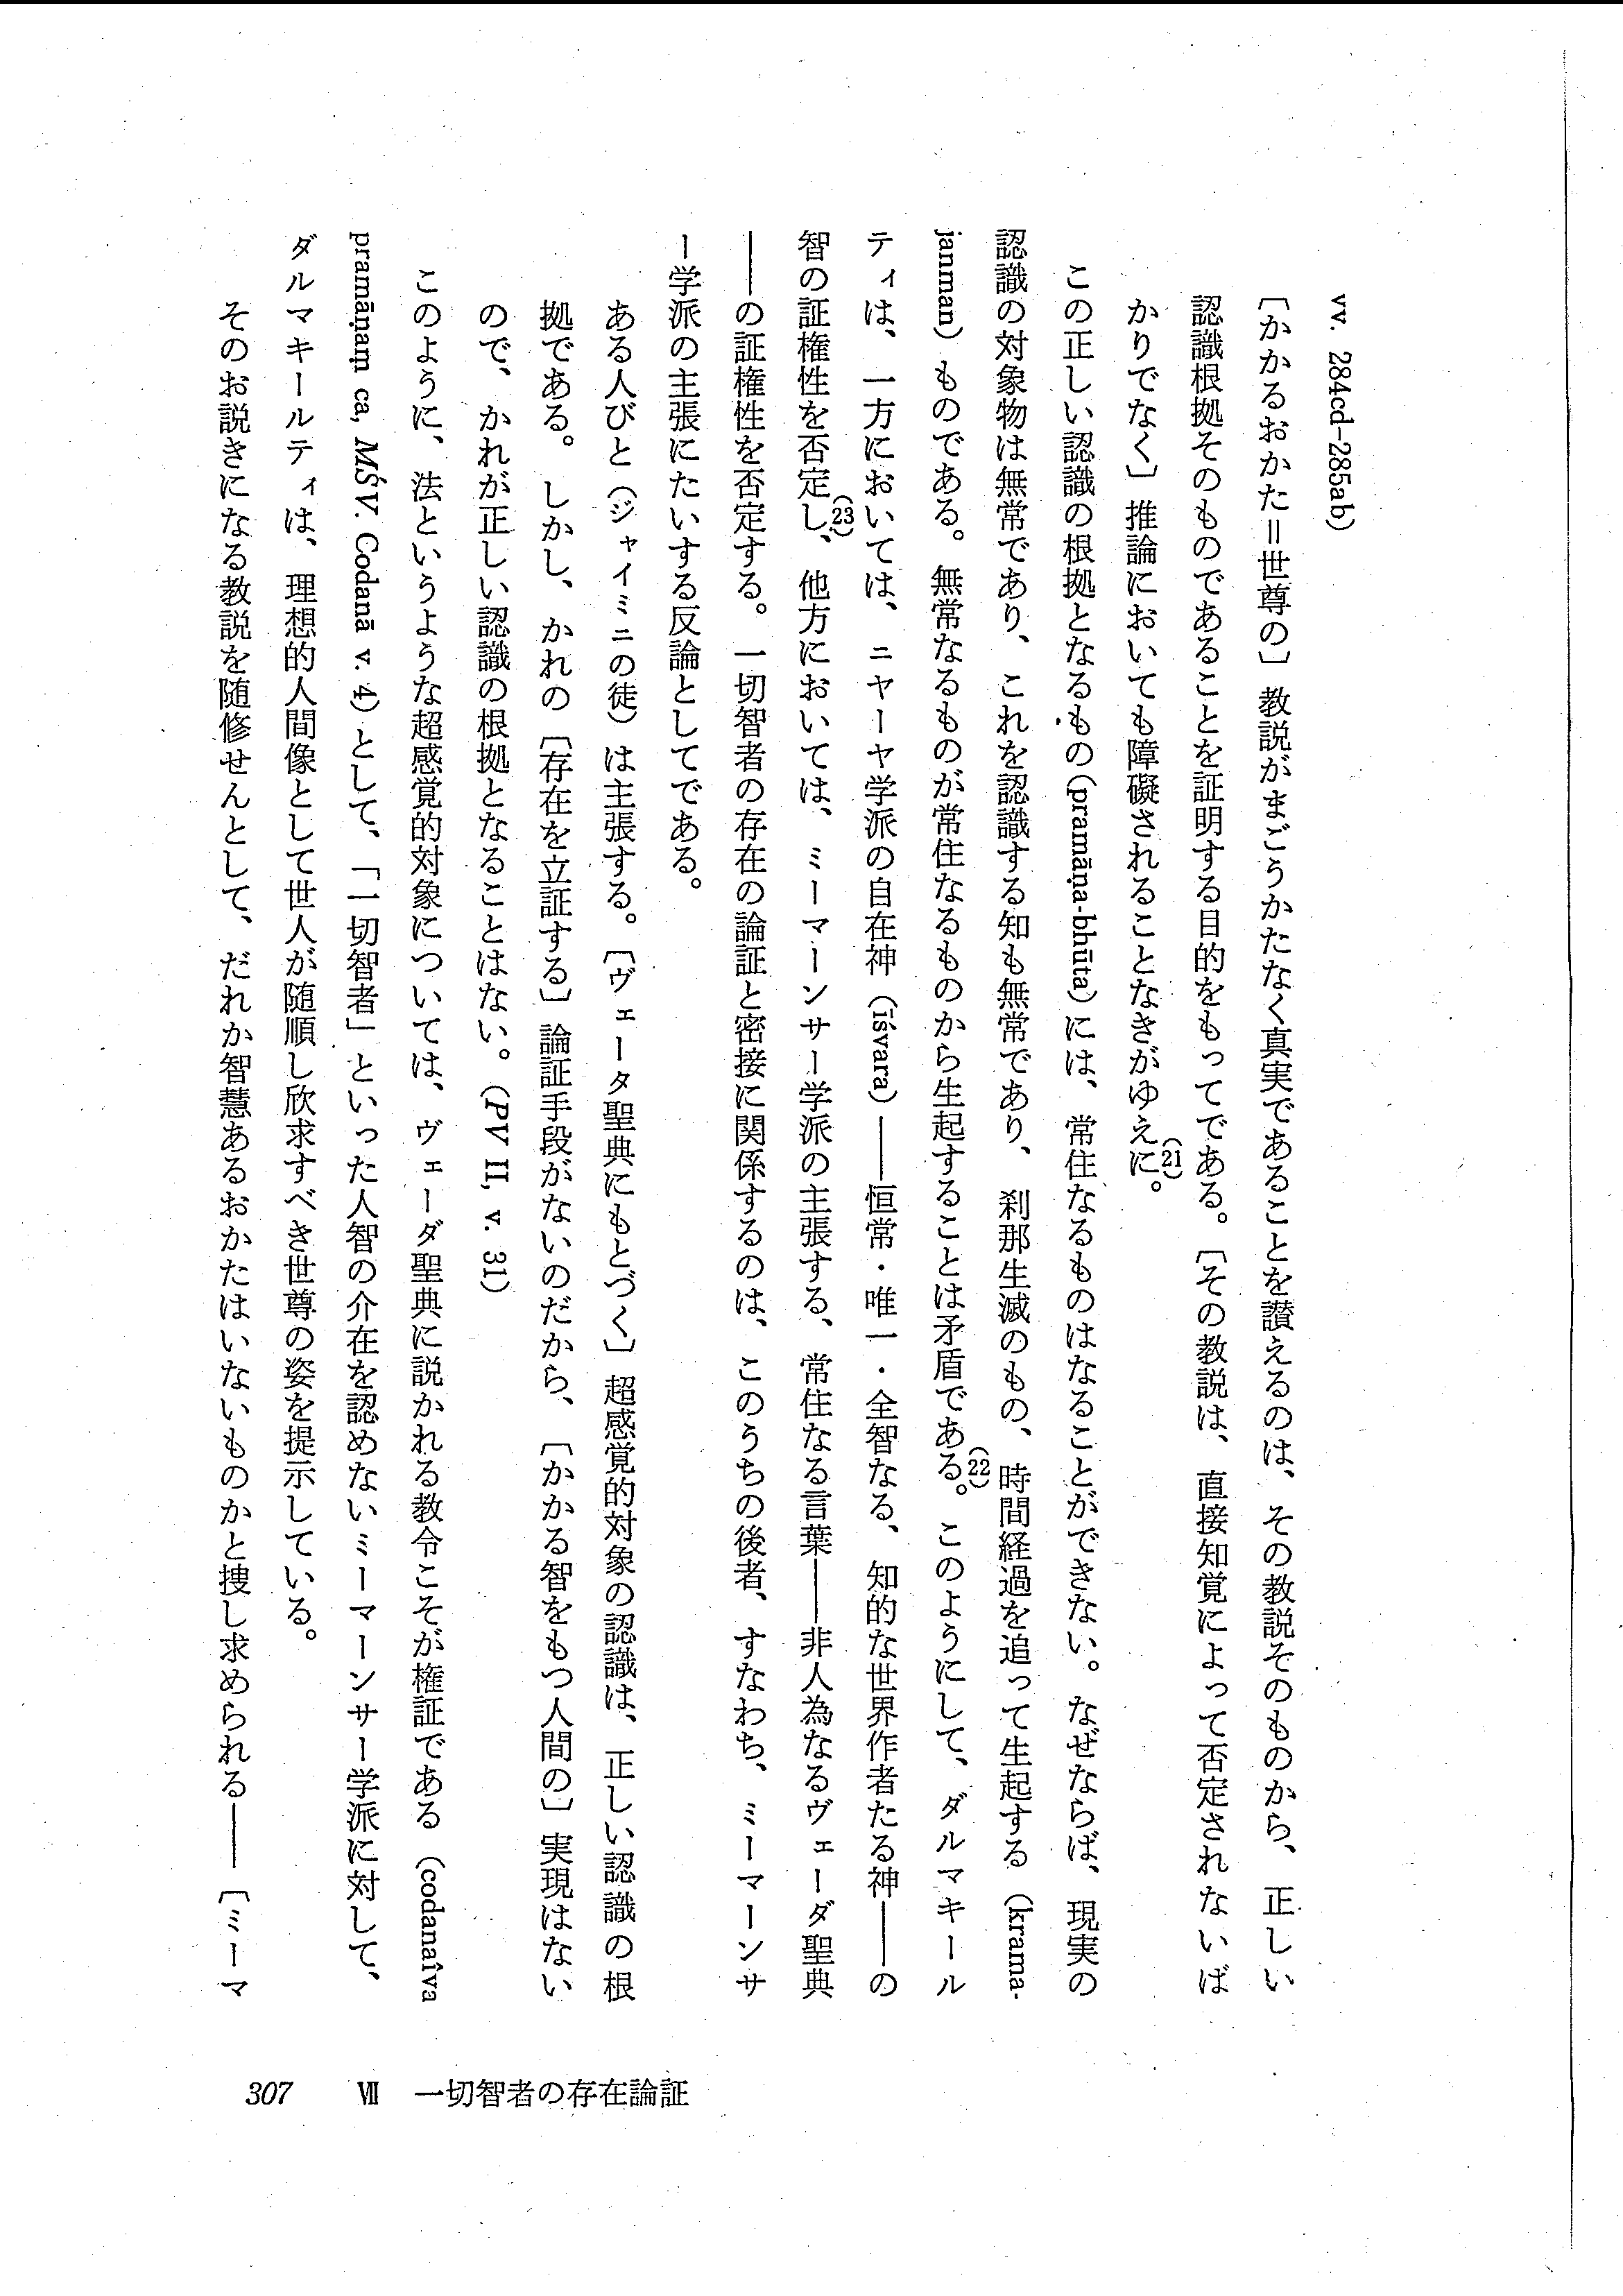 vv. 284cd-285ab)
〔かかるおかた＝世尊の〕教説がまごうかたなく真実であることを讃えるのは、その教説そのものから、正しい
認識根拠そのものであることを証明する目的をもってである。〔その教説は、直接知覚によって否定されないば
かりでなく〕推論においても障礙されることなきがゆえに。(21)
この正しい認識の根拠となるもの(pramāṇa-bhūta)には、常住なるものはなることができない。なぜならば、現実の
認識の対象物は無常であり、これを認識する知も無常であり、刹那生滅のもの、時間経過を追って生起する（krama-
janman）ものである。無常なるものが常住なるものから生起することは矛盾である。(22)このようにして、ダルマキール
ティは、一方においては、ニヤーヤ学派の自在神（īśvara）――恒常・唯一・全智なる、知的な世界作者たる神――の
智の証権性を否定し、(23)他方においては、ミーマーンサー学派の主張する、常住なる言葉――非人為なるヴェーダ聖典
――の証権性を否定する。一切智者の存在の論証と密接に関係するのは、このうちの後者、すなわち、ミーマーンサ
ー学派の主張にたいする反論としてである。
ある人びと（ジャイミニの徒）は主張する。〔ヴェータ聖典にもとづく〕超感覚的対象の認識は、正しい認識の根
拠である。しかし、かれの〔存在を立証する〕論証手段がないのだから、〔かかる智をもつ人間の〕実現はない
ので、かれが正しい認識の根拠となることはない。（PV II, v. 31）
このように、法というような超感覚的対象については、ヴェーダ聖典に説かれる教令こそが権証である（codanaîva
pramāṇaṃ ca, MŚV. Codanā v. 4）として、「一切智者」といった人智の介在を認めないミーマーンサー学派に対して、
ダルマキールティは、理想的人間像として世人が随順し欣求すべき世尊の姿を提示している。
そのお説きになる教説を随修せんとして、だれか智慧あるおかたはいないものかと捜し求められる――〔ミーマ
307 Ⅶ 一切智者の存在論証